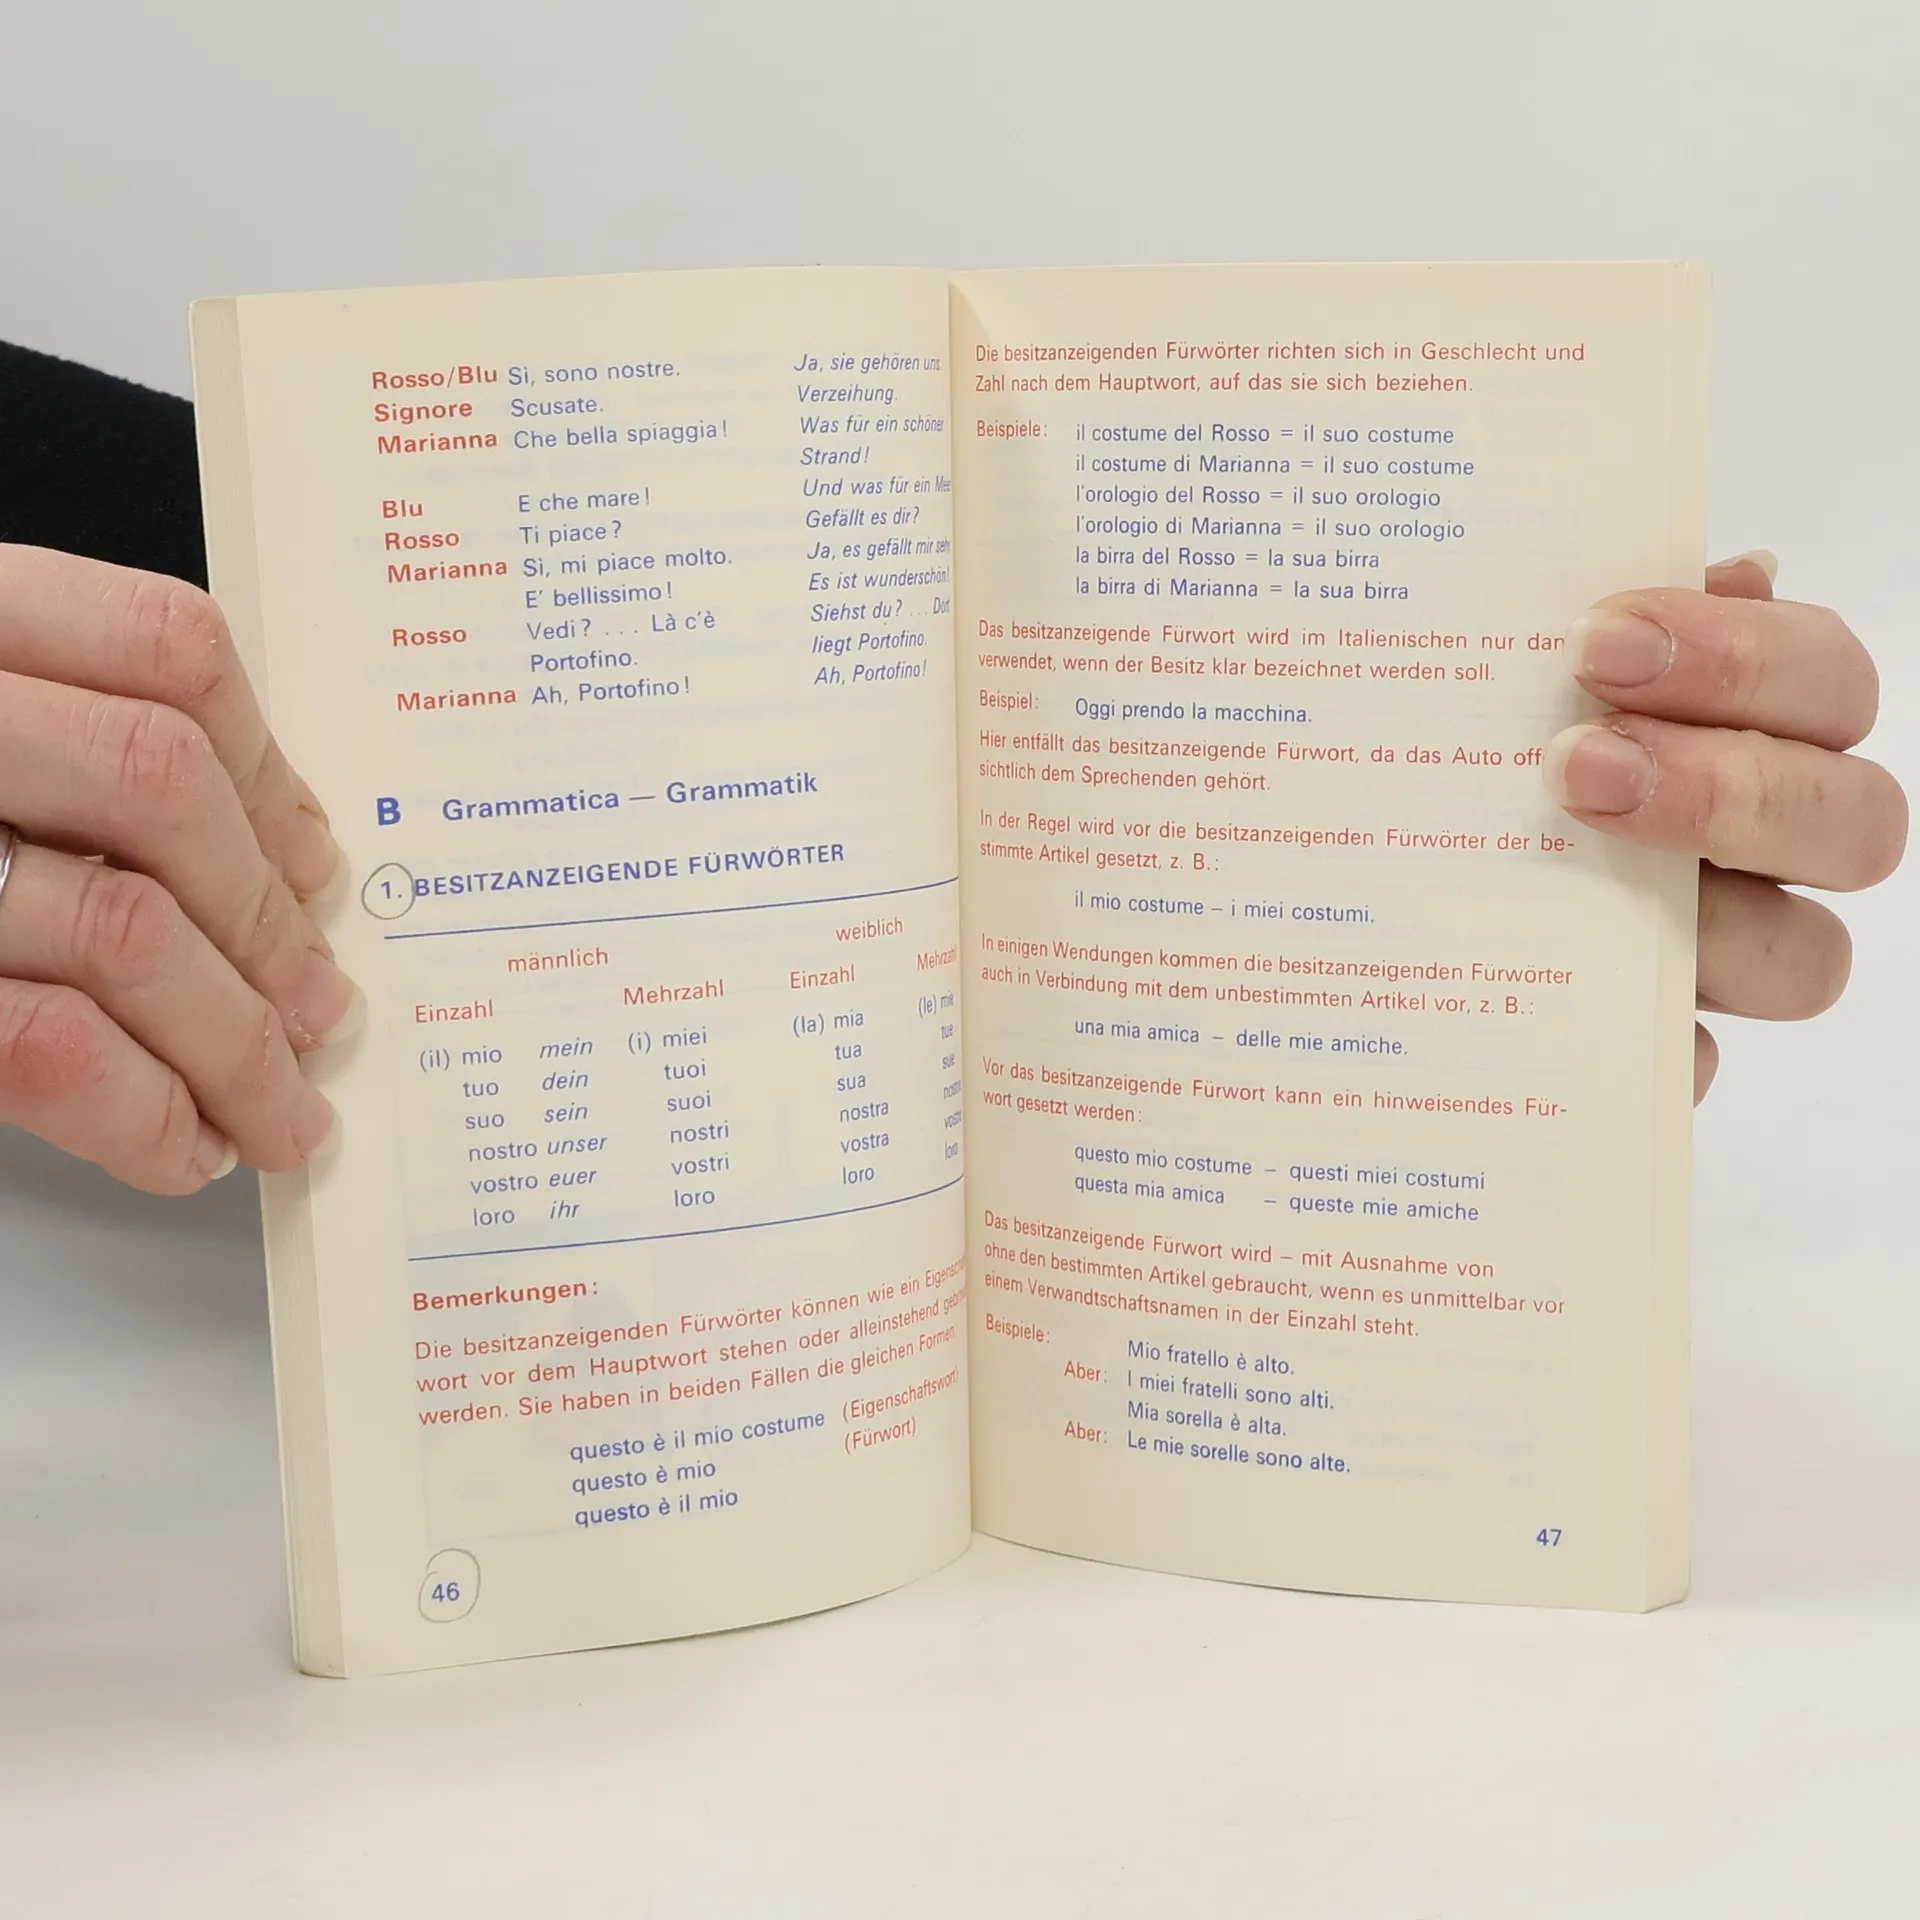 Rosso/Blu Sì, sono nostre. Ja, sie gehören uns.
Signore Scusate. Verzeihung.
Marianna Che bella spiaggia! Was für ein schöner
Strand!
Blu E che mare! Und was für ein
Rosso Ti piace? Gefällt es dir?
Marianna Sì, mi piace molto. Ja, es gefällt mir
E' bellissimo! Es ist wunderschön!
Rosso Vedi? ... Là c'è Siehst du? ... Dort
Portofino. liegt Portofino.
Marianna Ah, Portofino! Ah, Portofino!
B Grammatica — Grammatik
1. BESITZANZEIGENDE FÜRWÖRTER
männlich weiblich
Einzahl Mehrzahl Einzahl Mehrzahl
(il) mio mein (i) miei (la) mia (le) mie
tuo dein tuoi tua tue
suo sein suoi sua sue
nostro unser nostri nostra
vostro euer vostri vostra
loro ihr loro loro loro
Bemerkungen:
Die besitzanzeigenden Fürwörter können wie ein
wort vor dem Hauptwort stehen oder alleinstehend
werden. Sie haben in beiden Fällen die gleichen Formen
questo è il mio costume (Eigenschaftswort)
questo è mio (Fürwort)
questo è il mio
46
Die besitzanzeigenden Fürwörter richten sich in Geschlecht und
Zahl nach dem Hauptwort, auf das sie sich beziehen.
Beispiele: il costume del Rosso = il suo costume
il costume di Marianna = il suo costume
l'orologio del Rosso = il suo orologio
l'orologio di Marianna = il suo orologio
la birra del Rosso = la sua birra
la birra di Marianna = la sua birra
Das besitzanzeigende Fürwort wird im Italienischen nur dan
verwendet, wenn der Besitz klar bezeichnet werden soll.
Beispiel: Oggi prendo la macchina.
Hier entfällt das besitzanzeigende Fürwort, da das Auto off
sichtlich dem Sprechenden gehört.
In der Regel wird vor die besitzanzeigenden Fürwörter der be-
stimmte Artikel gesetzt, z. B.:
il mio costume – i miei costumi.
In einigen Wendungen kommen die besitzanzeigenden Fürwörter
auch in Verbindung mit dem unbestimmten Artikel vor, z. B.:
una mia amica – delle mie amiche.
Vor das besitzanzeigende Fürwort kann ein hinweisendes Für-
wort gesetzt werden:
questo mio costume – questi miei costumi
questa mia amica – queste mie amiche
Das besitzanzeigende Fürwort wird – mit Ausnahme von
ohne den bestimmten Artikel gebraucht, wenn es unmittelbar vor
einem Verwandtschaftsnamen in der Einzahl steht.
Beispiele: Mio fratello è alto.
Aber: I miei fratelli sono alti.
Mia sorella è alta.
Aber: Le mie sorelle sono alte.
47